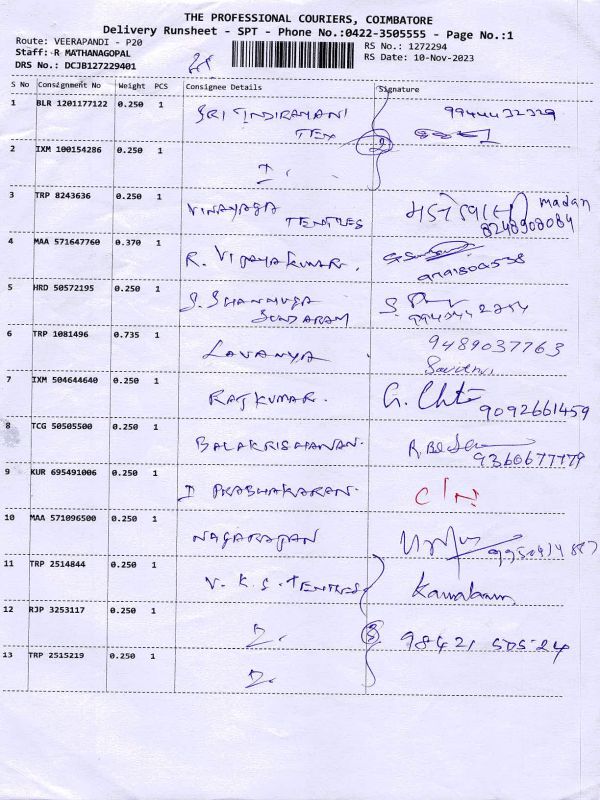 THE PROFESSIONAL COURIERS, COIMBATORE
Delivery Runsheet - SPT - Phone No.:0422-3505555 - Page No.:1
Route: VEERAPANDI - P20
RS No.: 1272294
Staff: R MATHANAGOPAL
RS Date: 10-Nov-2023
DRS No.: DCJB127229401
S No Consignment No Weight PCS Consignee Details Signature
1 BLR 1201177122 0.250 1 SRI INDIRAMANI TEX 9944432329
2
2 IXM 100154286 0.250 1
3 TRP 8243636 0.250 1 VINAYAGA TEXTILES madan 8248908084
4 MAA 571647760 0.370 1 R. VIJAYAKUMAR.
5 HRD 50572195 0.250 1 S. SHANMUGA SUNDARAM
6 TRP 1081496 0.735 1 LAVANYA 9489037763
7 IXM 504644640 0.250 1 RAJKUMAR. 9092661459
8 TCG 50505500 0.250 1 BALAKRISHANAN. 9360677779
9 KUR 695491006 0.250 1 PRABHAKARAN. C/N
10 MAA 571096500 0.250 1 NAGARAJAN
11 TRP 2514844 0.250 1 V. K. S. TEXTILES
12 RJP 3253117 0.250 1 3 98421 505-24
13 TRP 2515219 0.250 1